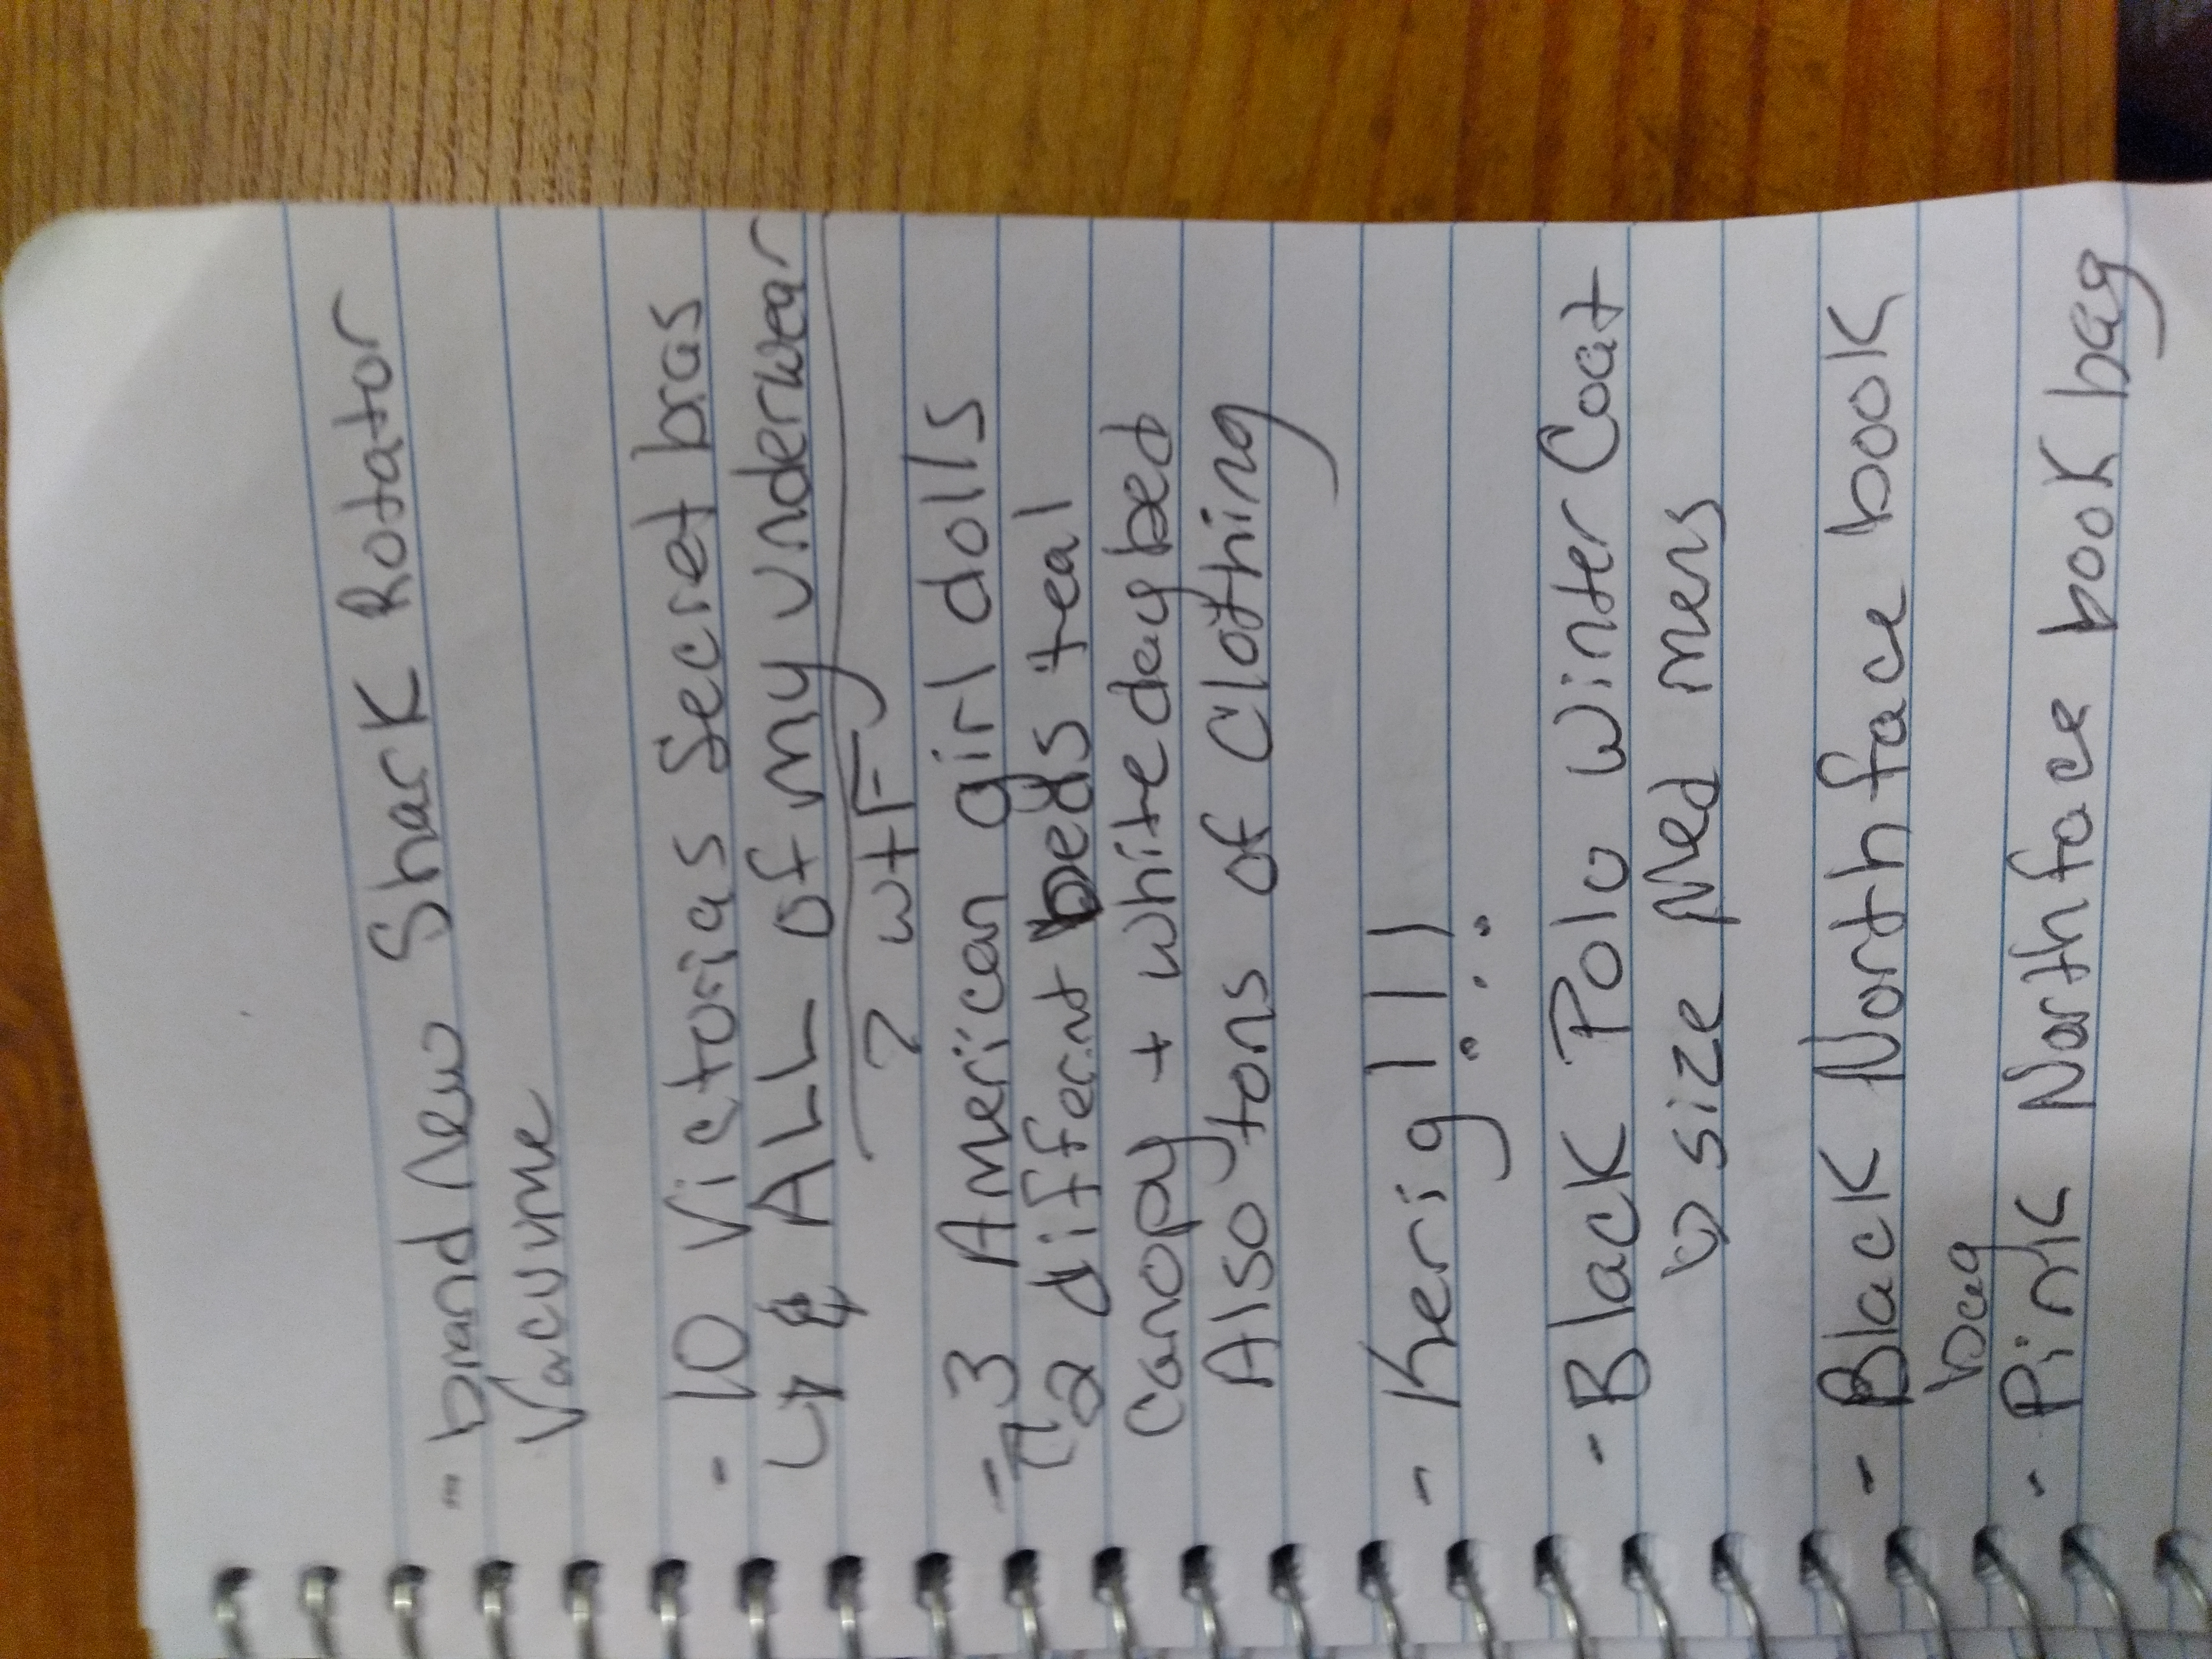 - brand New Shark Rotator
Vacuume
- 10 Victorias Secret bras
↳ & ALL of my underwear
? wtF
- 3 American girl dolls
↳ 2 different beds teal
canopy + white daybed
Also tons of Clothing
- Kerig !!!
- Black Polo winter Coat
↳ size Med mens
- Black Northface book
bag
- Pink Northface book bag